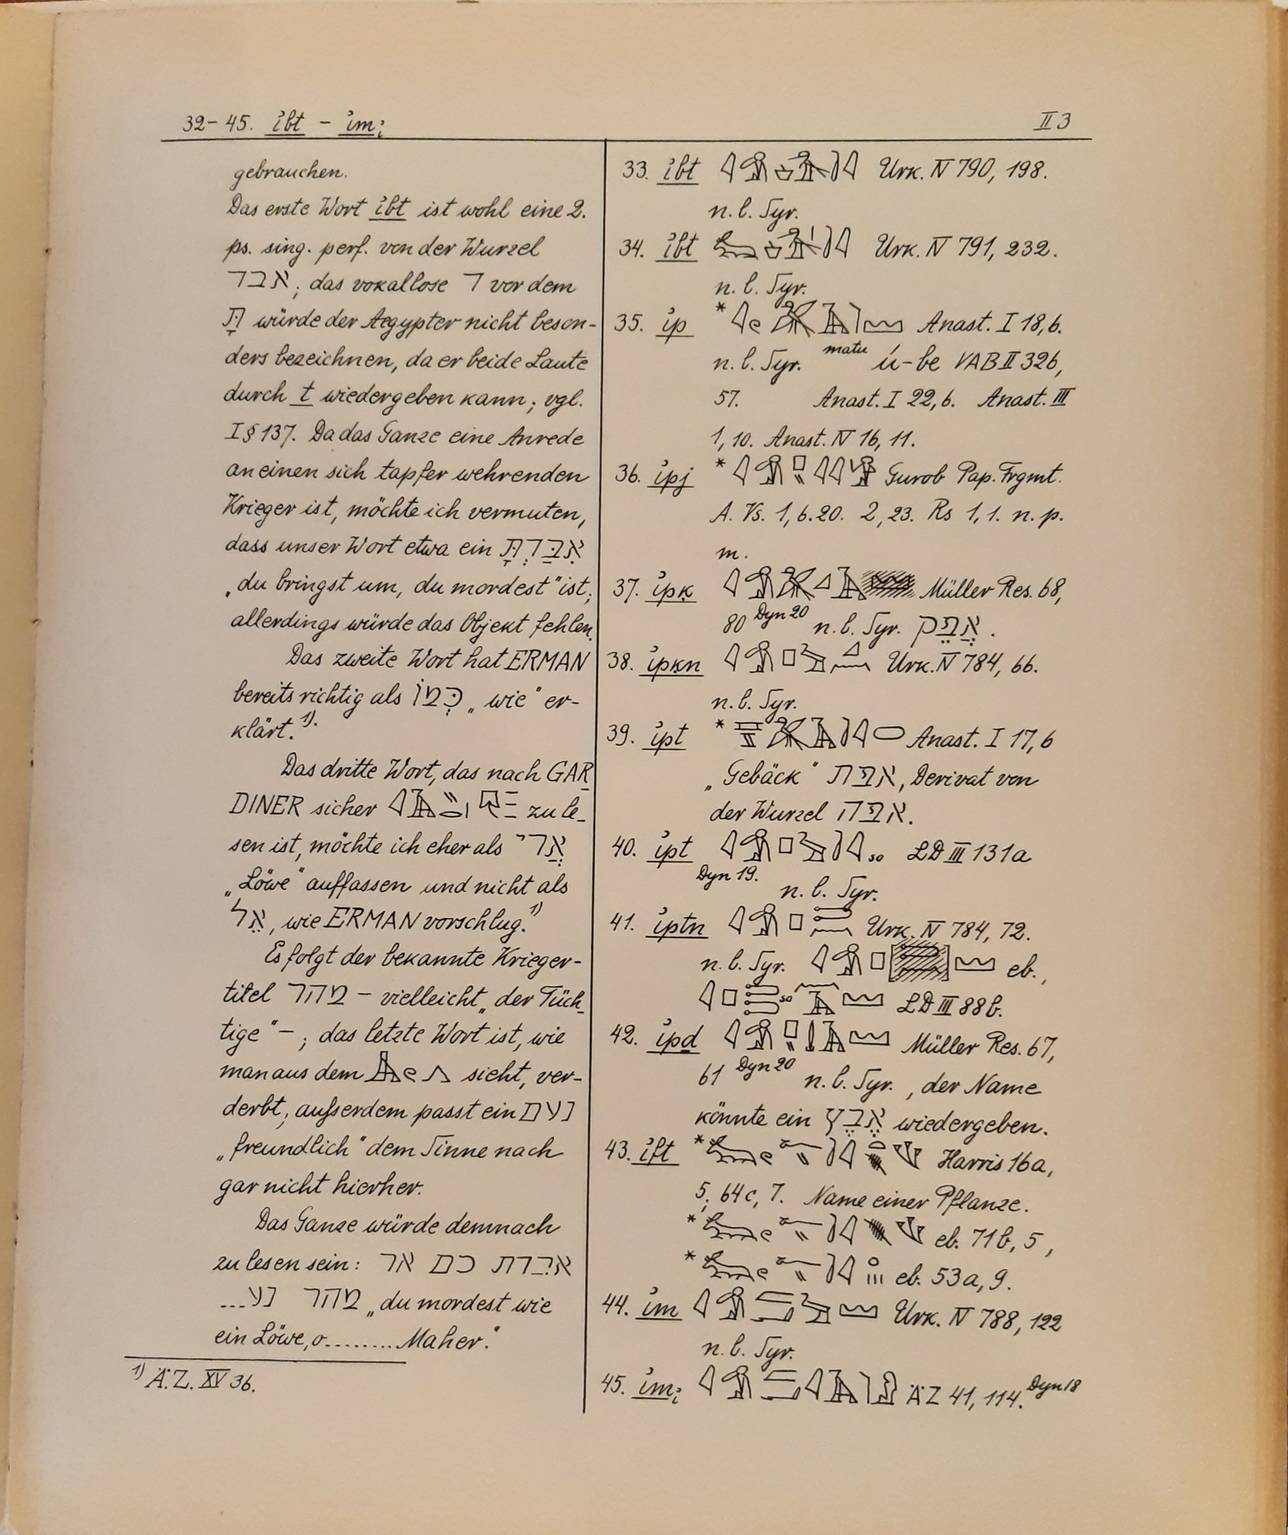 32-45. i̓bt - i̓mi̯
II 3
gebrauchen.
Das erste Wort i̓bt ist wohl eine 2.
ps. sing. perf. von der Wurzel
אבד; das vokallose ד vor dem
תָּ würde der Aegypter nicht beson-
ders bezeichnen, da er beide Laute
durch t wiedergeben kann; vgl.
I § 137. Da das Ganze eine Anrede
an einen sich tapfer wehrenden
Krieger ist, möchte ich vermuten,
dass unser Wort etwa ein
„du bringst um, du mordest" ist;
allerdings würde das Objekt fehlen.
Das zweite Wort hat ERMAN
bereits richtig als כְּמוֹ „wie" er-
klärt.¹⁾
Das dritte Wort, das nach GAR
DINER sicher zu le-
sen ist, möchte ich eher als אֲרִי
„Löwe" auffassen und nicht als
אֵל, wie ERMAN vorschlug.¹⁾
Es folgt der bekannte Krieger-
titel מהר - vielleicht „der Tüch-
tige" -; das letzte Wort ist, wie
man aus dem sieht, ver-
derbt; außerdem passt ein נעם
„freundlich" dem Sinne nach
gar nicht hierher.
Das Ganze würde demnach
zu lesen sein: אבדת כם אר
מהר נע... „du mordest wie
ein Löwe, o......... Maher."
¹⁾ Ä.Z. XV 36.
33. i̓bt Urk. IV 790, 198.
n. l. Syr.
34. i̓bt Urk. IV 791, 232.
n. l. Syr.
35. i̓p * Anast. I 18,6.
n. l. Syr. matu ú-be VAB II 326,
57. Anast. I 22,6. Anast. III
1,10. Anast. IV 16,11.
36. i̓pj * Gurob Pap. Frgmt.
A. Vs. 1,6.20. 2,23. Rs 1,1. n. p.
m.
37. i̓pḳ Müller Res. 68,
80 Dyn 20 n. l. Syr. אֲפֵק.
38. i̓pḳn Urk. IV 784, 66.
n. l. Syr.
39. i̓pt * Anast. I 17,6
„Gebäck" אפת, Derivat von
der Wurzel אפה.
40. i̓pt so LD III 131a
Dyn 19. n. l. Syr.
41. i̓pṯn Urk. IV 784, 72.
n. l. Syr. eb.,
so LD III 88b.
42. i̓pḏ Müller Res. 67,
61 Dyn 20 n. l. Syr., der Name
könnte ein אֶבֶץ wiedergeben.
43. i̓ft * Harris 16a,
5; 64c, 7. Name einer Pflanze.
* eb. 71b, 5,
* eb. 53a, 9.
44. i̓m Urk. IV 788, 122
n. l. Syr.
45. i̓mi̯ ÄZ 41, 114. Dyn 18